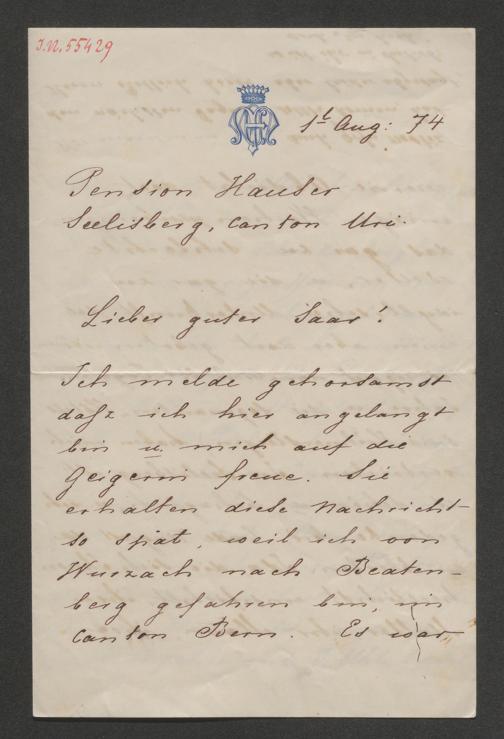 J.N. 55429
1t Aug: 74
Pension Hauser
Seelisberg, Canton Uri.
Lieber guter Saar!
Ich melde gehorsamst
dasz ich hier angelangt
bin u. mich auf die
Geigerin freue. Sie
erhalten diese Nachricht
so spät, weil ich von
Wurzach nach Beaten-
berg gefahren bin, im
Canton Bern. Es war